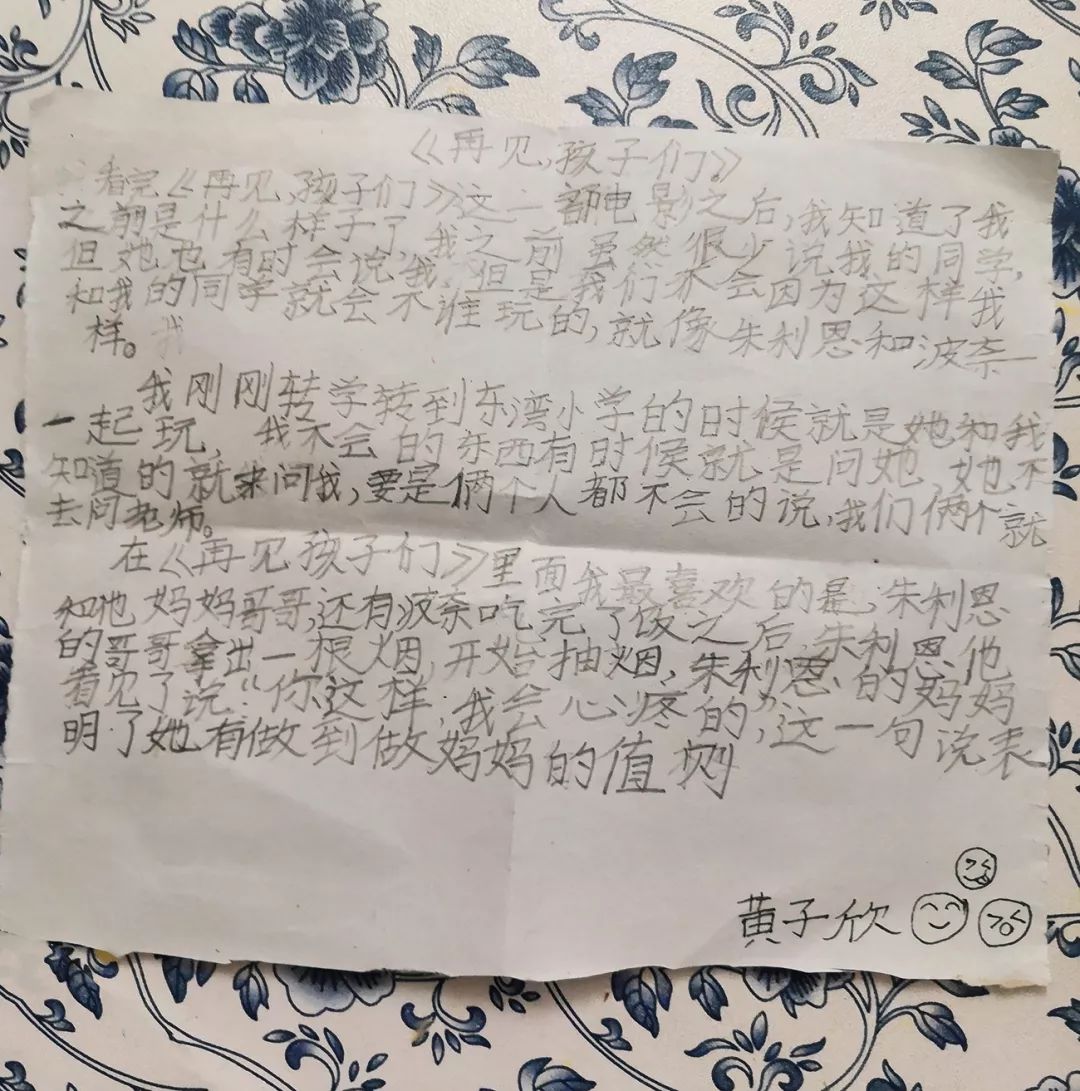 《再见,孩子们》
看完《再见,孩子们》这一部电影之后,我知道了我
之前是什么样子了,我之前虽然很少说我的同学,
但她也有时会说我.但是我们不会因为这样我
和我的同学就会不准玩的,就像朱利恩和波奈一
样。我
我刚刚转学转到东湾小学的时候就是她和我
一起玩,我不会的东西有时候就是问她,她不
知道的就来问我,要是俩个人都不会的说,我们俩个就
去问老师。
在《再见孩子们》里面我最喜欢的是,朱利恩
和他妈妈哥哥,还有波奈吃完了饭之后,朱利恩
的哥哥拿出一根烟,开始抽烟,朱利恩的妈妈
看见了说:“你这样,我会心疼的”,这一句说表
明了她有做到做妈妈的值
黄子欣